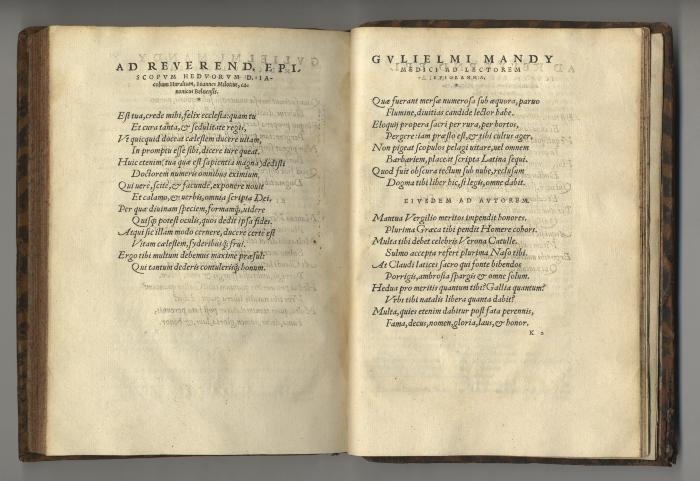 AD REVEREND. EPI-
SCOPVM HEDVORVM D. IA-
cobum Huraltum, Ioannes Milotius, ca-
nonicus Belnensis.
Est tua, crede mihi, felix ecclesia: quam tu
Et cura tanta, & sedulitate regis,
Vt quicquid doceat cælestem ducere uitam,
In promptu esse sibi, dicere iure queat.
Huic etenim (tua quæ est sapientia magna) dedisti
Doctorem numeris omnibus eximium,
Qui uerè, scitè, & facundè, exponere nouit
Et calamo, & uerbis, omnia scripta Dei,
Per quæ diuinam speciem, formamq́, uidere
Quisq́ potest oculis, quos dedit ipsa fides.
Atqui sic illam modo cernere, ducere certè est
Vitam cælestem, syderibusq́ frui.
Ergo tibi multum debemus maxime præsul:
Qui tantum dederis contulerisq́ bonum.
GVLIELMI MANDY
MEDICI AD LECTOREM
EPIGRAMMA.
Quæ fuerant mersæ numerosa sub æquora, paruo
Flumine, diuitias candide lector habe.
Eloquij propera sacri per rura, per hortos,
Pergere: iam præsto est, & tibi cultus ager.
Non pigeat scopulos pelagi uittare, uel omnem
Barbariem, placeat scripta Latina sequi.
Quod fuit obscura tectum sub nube, reclusum
Dogma tibi liber hic, si legis, omne dabit.
EIVSDEM AD AVTOREM.
Mantua Vergilio meritos impendit honores.
Plurima Græca tibi pendit Homere cohors.
Multa tibi debet celebris Verona Catulle.
Sulmo accepta refert plurima Naso tibi.
At Claudi latices sacro qui fonte bibendos
Porrigis, ambrosia spargis & omne solum.
Hedua pro meritis quantum tibi? Gallia quantum?
Vrbs tibi natalis libera quanta dabit?
Multa, quies etenim dabitur post fata perennis,
Fama, decus, nomen, gloria, laus, & honor.
K 2